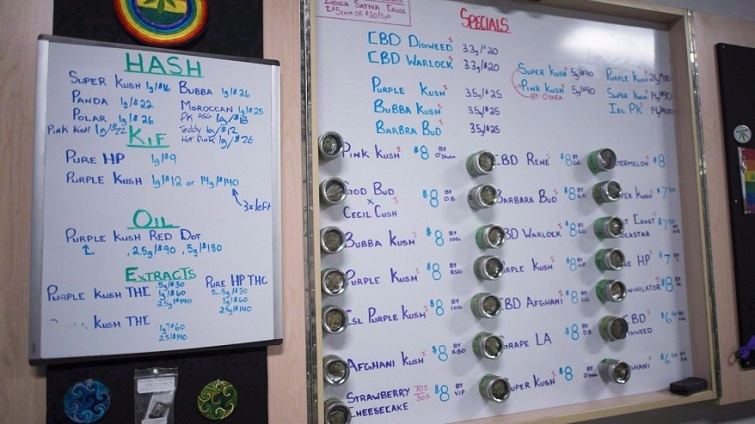 HASH
SUPER KUSH 1g/$16
BUBBA 1g/$26
PANDA 1g/$22
MOROCCAN 1g/$25
POLAR 1g/$26
PINK KUSH
TEDDY 1g/$12
HOT PINK 1g/$26
KIF
PURE HP 1g/$9
PURPLE KUSH 1g/$12 OR 14g/$140
3x left
OIL
PURPLE KUSH RED DOT
.2.5g/$90 , 5g/$180
EXTRACTS
PURPLE KUSH THC .5g/$30
1g/$60
2.5g/$140
PURE HP THC
.5g/$30
1g/$60
2.5g/$140
KUSH THC
1g/$60
2.5/$140
INDICA SATIVA
SPECIALS
CBD DIGWEED 3.3g/$20
CBD WARLOCK 3.3g/$20
PURPLE KUSH 3.5g/$25
BUBBA KUSH 3.5g/$25
BARBRA BUD 3.5g/$25
SUPER KUSH 5g/$40
PINK KUSH 5g/$40
PURPLE KUSH
SUPER KUSH
ISL PK
PINK KUSH $8 BY
GOD BUD X CECIL CUSH $8 BY
BUBBA KUSH $8 BY
PURPLE KUSH $8 BY
ISL PURPLE KUSH $8 BY
AFGHANI KUSH $8 BY RBO
STRAWBERRY CHEESECAKE $8 BY VIP
CBD RENE $8
BARBARA BUD $8
CBD WARLOCK $8
PURPLE KUSH $8
CBD AFGHANI $8
GRAPE LA $8
SUPER KUSH $8 BY
TERMELON $8
PER KUSH $7
ST COAST
CKSTAR $7
E HP $7
NIHILATOR $8
CBD
GWEED $6
HANI $6